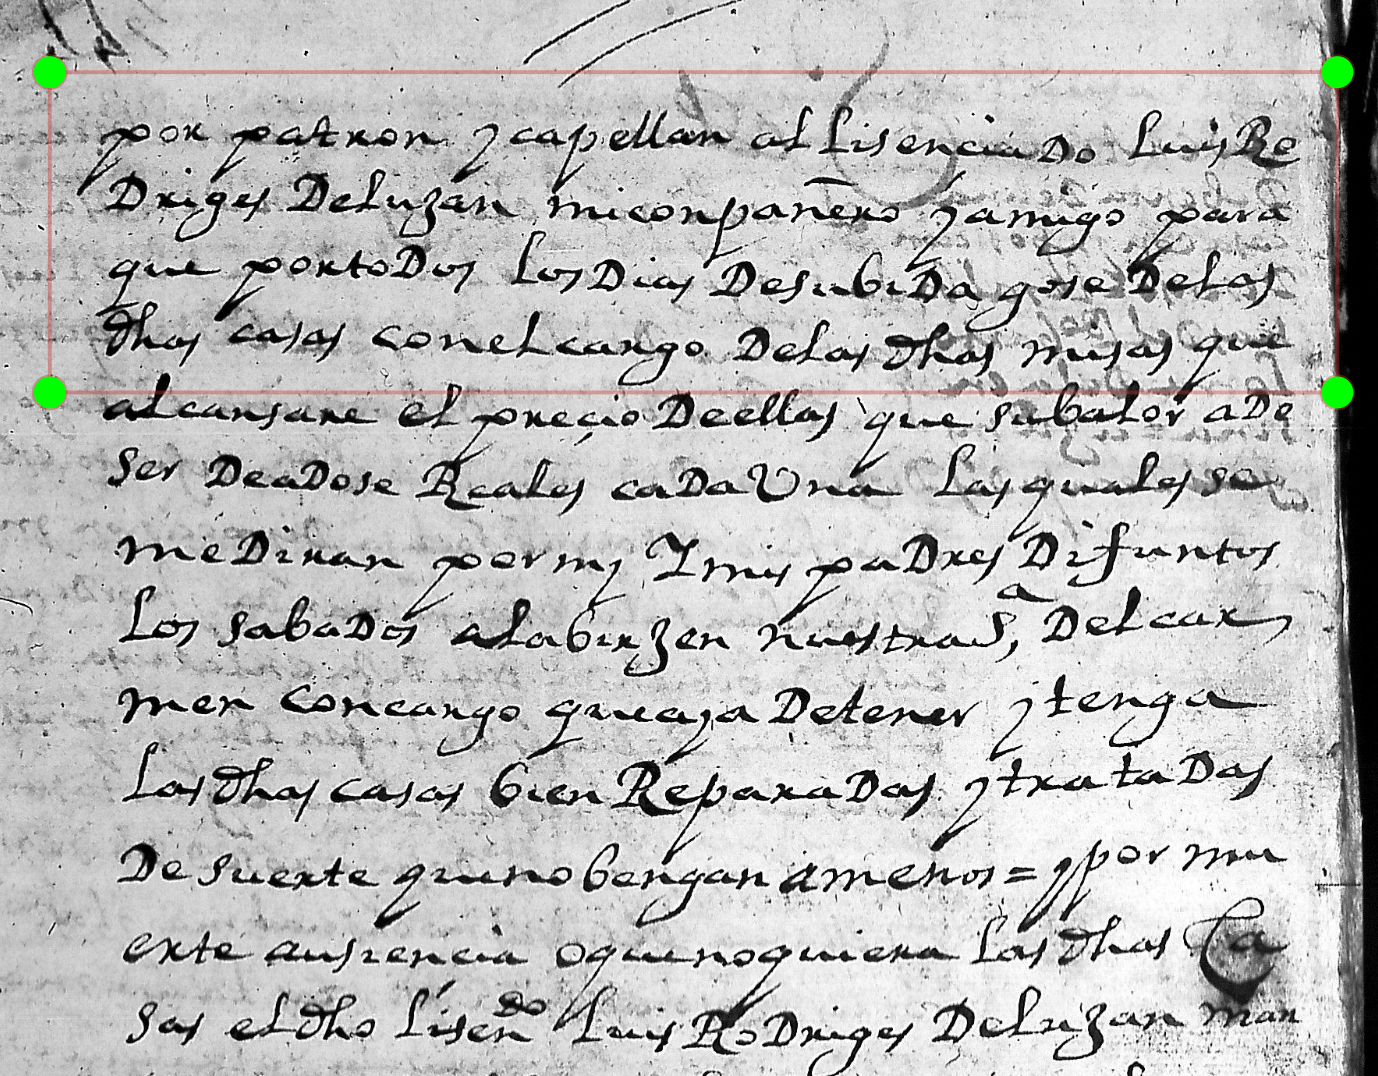 por patron y capellan al Lisenciado Luis Ro
Driges De luzan mi conpañero y amigo para
que por todos los Dias De su biDa gose De las
dhas casas con el cargo De las dhas misas que
alcansare el preçio De ellas que su balor a De
ser De a Dose Reales caDa Una las quales se
me Diran por my Y mis paDres Difuntos
los sabaDos a la birgen nuestra Sa, Del car
men con cargo que aya De tener y tenga
las dhas casas bien ReparaDas y trataDas
De suerte que no bengan a menos = y por mu
erte ausiencia o que no quiera las dhas Ca
sas el dho lísendo Luis RoDriges De luzan man